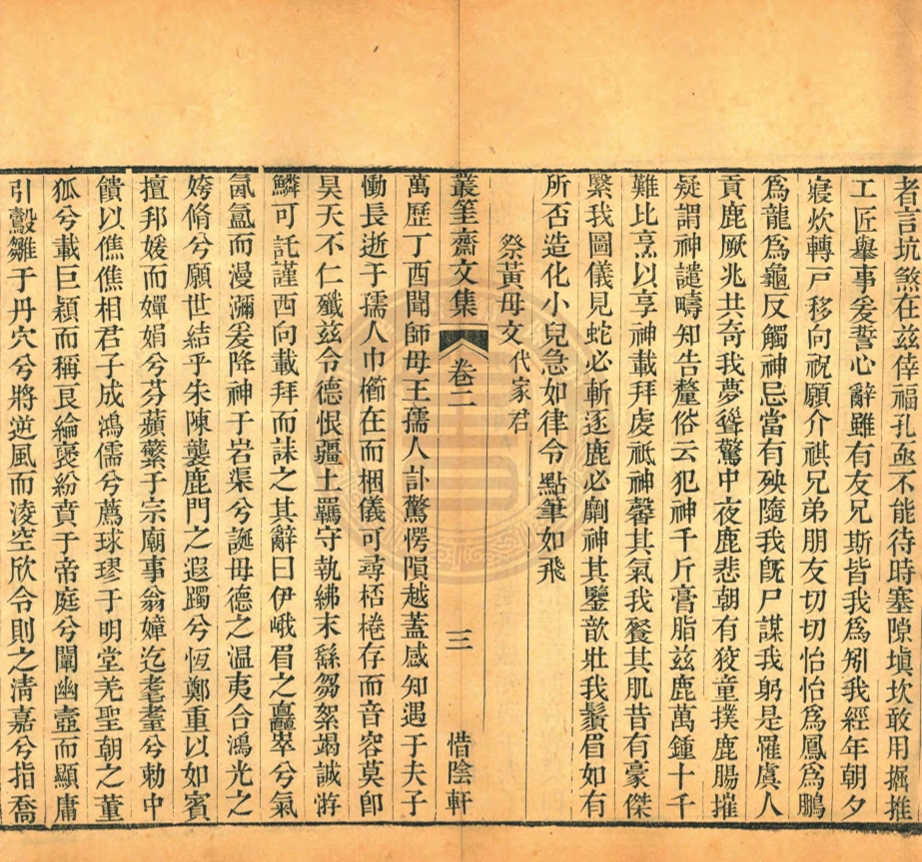 者言坑煞在茲倖福孔亟不能待時塞隙塡坎敢用掘推
工匠舉事爰誓心辭雖有友兄斯皆我爲矧我經年朝夕
寢炊轉戸移向祝願介祺兄弟朋友切切怡怡爲鳳爲鵬
爲龍爲龜反觸神忌當有殃隨我旣尸謀我躬是罹虞人
貢鹿厥兆共奇我夢聳驚中夜鹿悲朝有狡童撲鹿腸摧
疑謂神譴疇知告釐俗云犯神千斤膏脂茲鹿萬鍾十千
難比烹以享神載拜虔祗神馨其氣我餐其肌昔有豪傑
繄我圖儀見蛇必斬逐鹿必劘神其鑒歆壯我鬚眉如有
所否造化小兒急如律令點筆如飛
祭黃母文代家君
叢筆齋文集 卷二 三 惜陰軒
萬歷丁酉聞師母王孺人訃驚愕隕越蓋感知遇于夫子
慟長逝于孺人巾櫛在而梱儀可尋桮棬存而音容莫卽
昊天不仁殲茲令德恨疆土羈守執紼末繇芻絮竭誠游
鱗可託謹西向載拜而誄之其辭曰伊峨眉之矗翠兮氣
氤氳而漫瀰爰降神于岩渠兮誕母德之温夷合鴻光之
姱脩兮願世結乎朱陳襲鹿門之遐躅兮恆鄭重以如賓
擅邦媛而嬋娟兮芬蘋蘩于宗廟事翁嫜迄耆耋兮勅中
饋以僬僬相君子成鴻儒兮薦球璆于明堂羌聖朝之董
狐兮載巨穎而稱良綸褒紛賁于帝庭兮闡幽壼而顯庸
引鷇雛于丹穴兮將逆風而淩空欣令則之淸嘉兮指喬